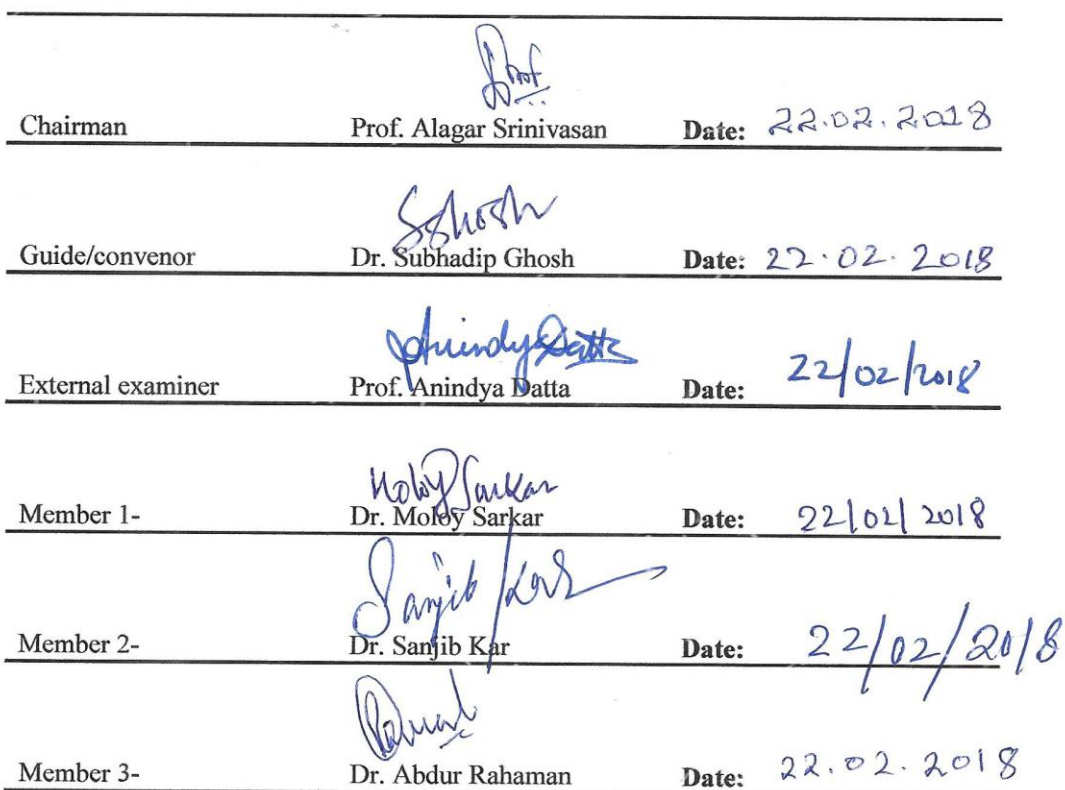 Chairman Prof. Alagar Srinivasan Date: 22.02.2018
SGhosh
Guide/convenor Dr. Subhadip Ghosh Date: 22.02.2018
Anindya Datta
External examiner Prof. Anindya Datta Date: 22/02/2018
Moloy Sarkar
Member 1- Dr. Moloy Sarkar Date: 22/02/2018
Sanjib Kar
Member 2- Dr. Sanjib Kar Date: 22/02/2018
Member 3- Dr. Abdur Rahaman Date: 22.02.2018